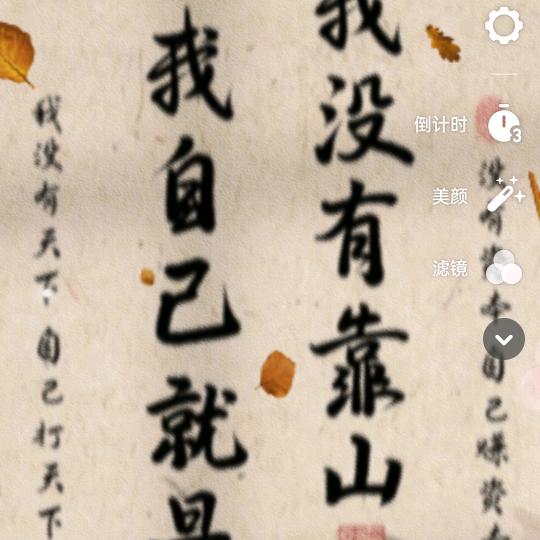 没有资本
自己赚资
我没有靠山
我自己就是
我没有天下
自己打天下
倒计时
3
美颜
滤镜